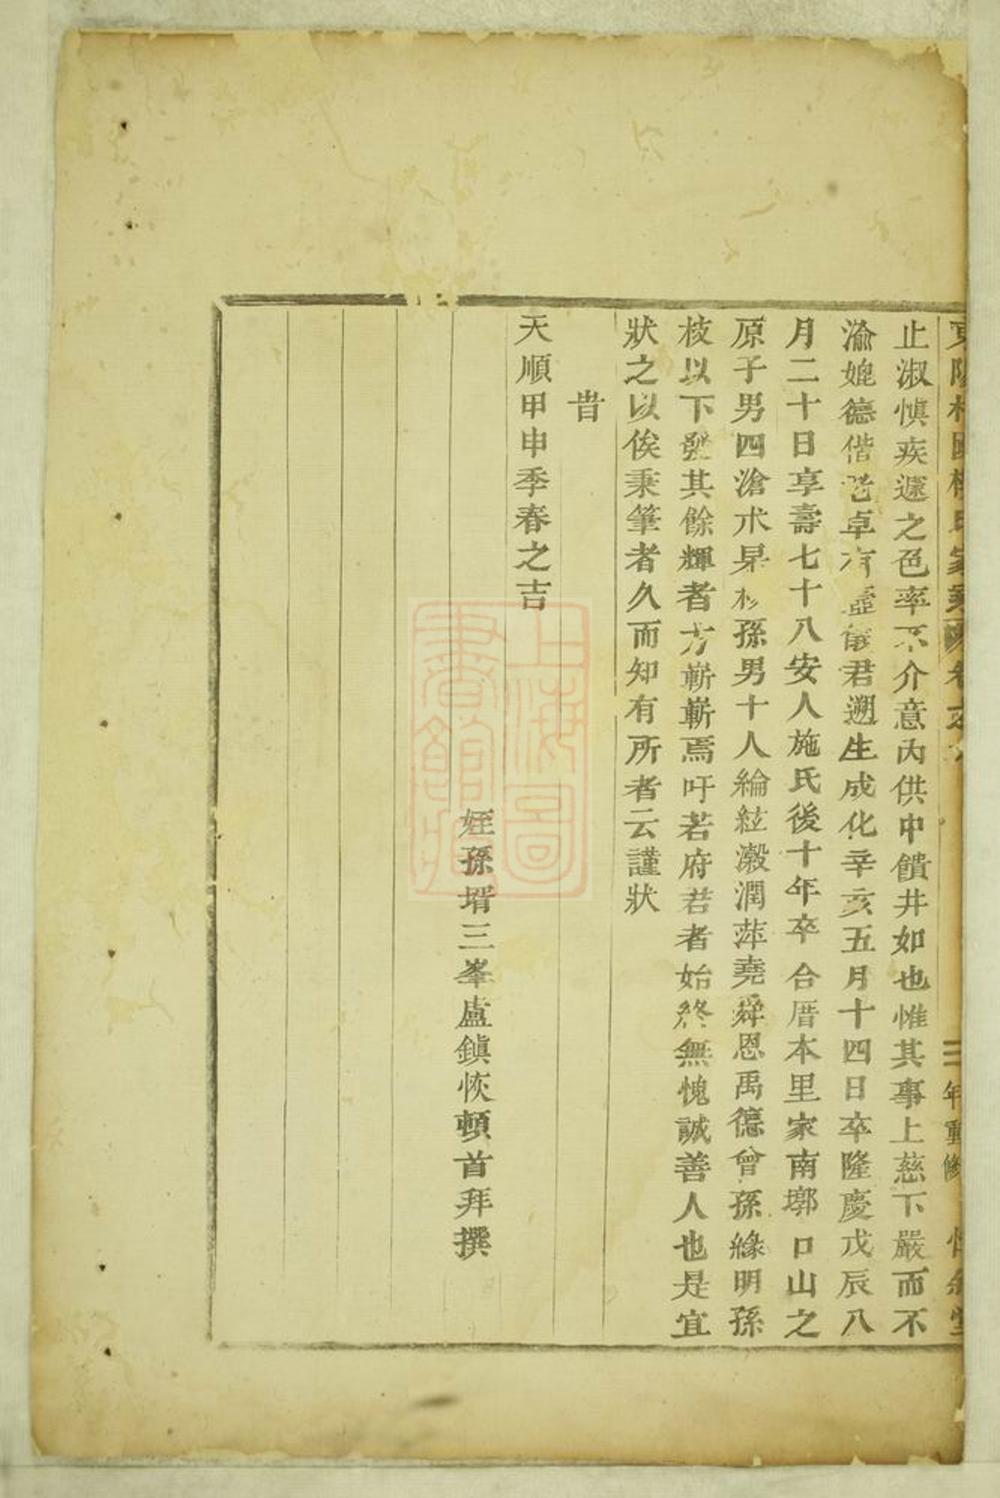 止淑慎疾遽之色率不介意內供中饋井如也惟其事上慈下嚴而不
渝媲德偕老卓有壼儀君遡生成化辛亥五月十四日卒隆慶戊辰八
月二十日享壽七十八安人施氏後十年卒合厝本里家南墎口山之
原子男四滄朮杲杉孫男十人綸紘瀫潤萍堯舜恩禹德曾孫緣明孫
枝以下發其餘輝者方嶄嶄焉吁若府君者始終無愧誠善人也是宜
狀之以俟秉筆者久而知有所者云謹狀
旹
天順甲申季春之吉
姪孫壻三峯盧鎮恢頓首拜撰
年重修
上海圖書館藏